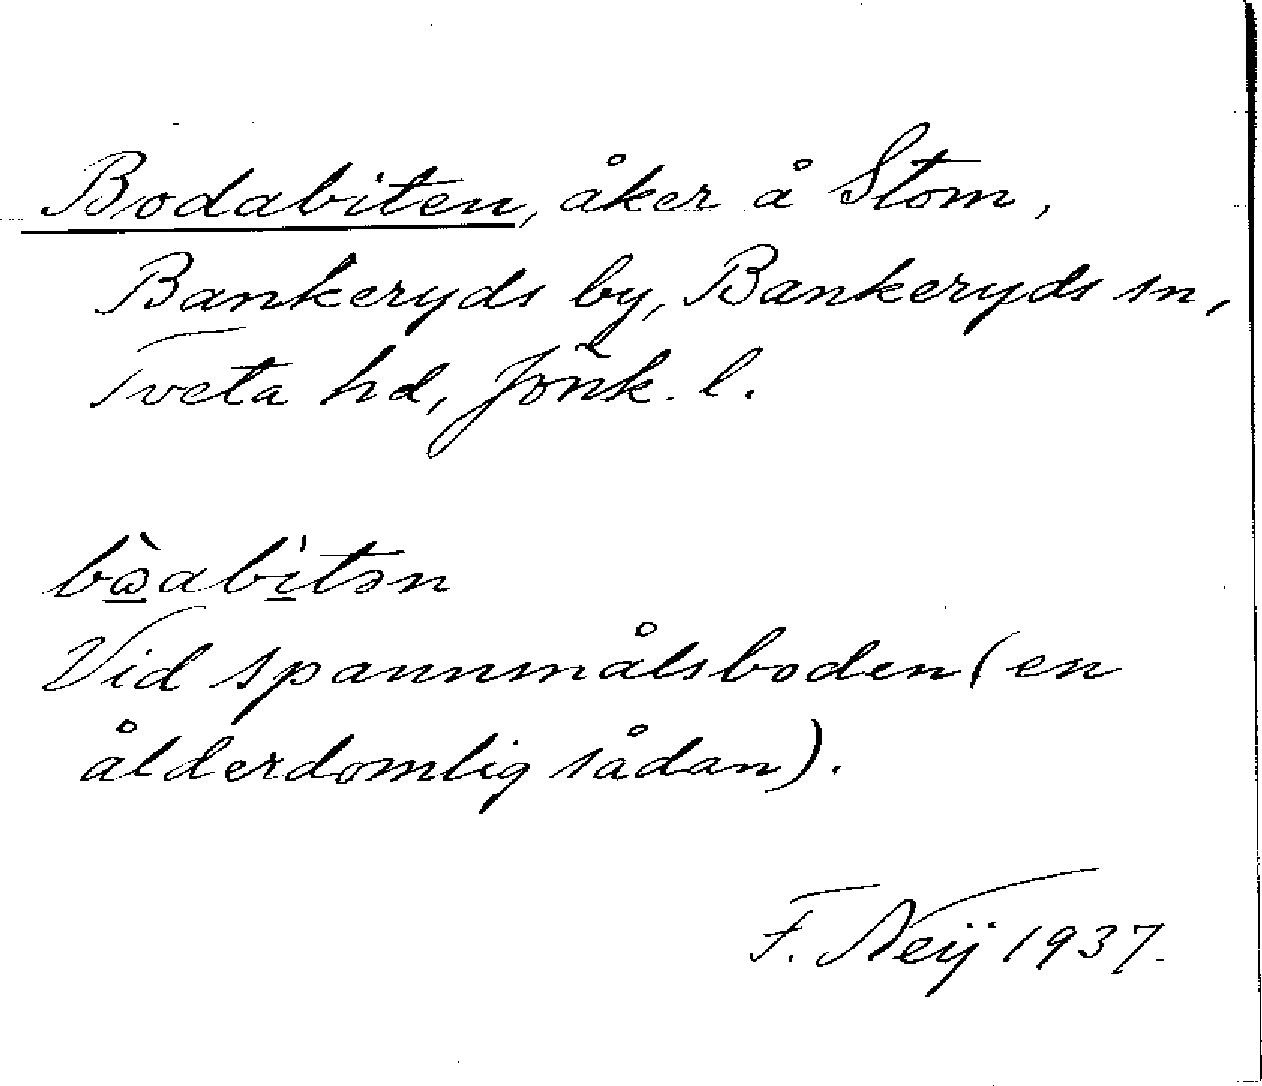 Bodabiten, åker å Stom,
Bankeryds by, Bankeryds sn,
Tveta hd, Jönk. l.
bὼ̲abi̲tən
Vid spannmålsboden (en
ålderdomlig sådan).
F. Neij 1937.